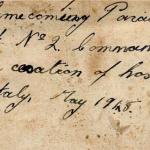 omecoming Para
No 2. Comman
cation of hos
taly, May 1945.